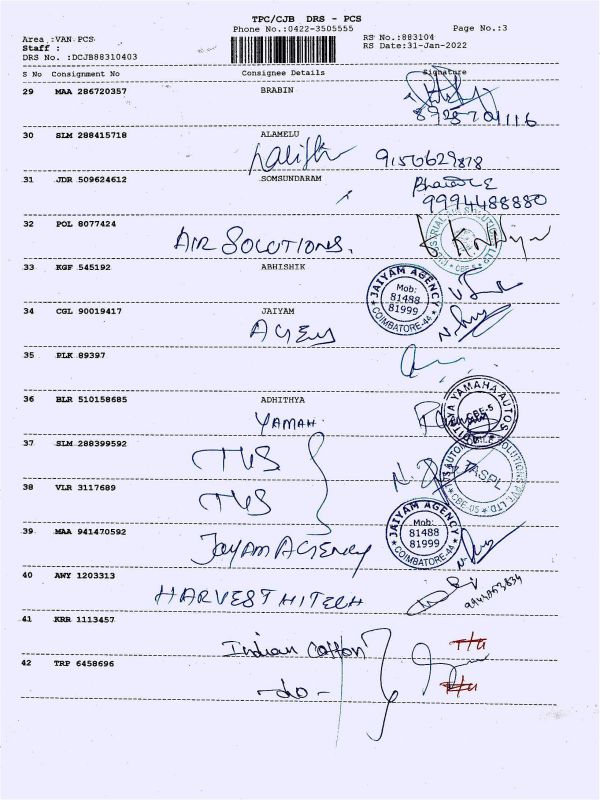 TPC/CJB DRS - PCS
Phone No.:0422-3505555
Page No.:3
Area :VAN PCS
RS No.:883104
Staff :
RS Date:31-Jan-2022
DRS No. :DCJB88310403
S No Consignment No Consignee Details Signature
29 MAA 286720357 BRABIN
30 SLM 288415718 ALAMELU
Lalith 9150629878
31 JDR 509624612 SOMSUNDARAM
9994488880
32 POL 8077424
AIR SOLUTIONS.
33 KGF 545192 ABHISHIK
JAIYAM AGENCY
Mob:
81488
81999
COIMBATORE-44
34 CGL 90019417 JAIYAM
AGENY
35 PLK 89397
36 BLR 510158685 ADHITHYA
YAMAH
YAMAHA AUTOS
CBE-5
37 SLM 288399592
TVS
TASPL
CBE-05
38 VLR 3117689
TVS
39 MAA 941470592
JAYAM AGENCY
JAIYAM AGENCY
Mob:
81488
81999
COIMBATORE-44
40 AWY 1203313
HARVEST HITECH
41 KRR 1113457
Indian Cotton
42 TRP 6458696
-do-